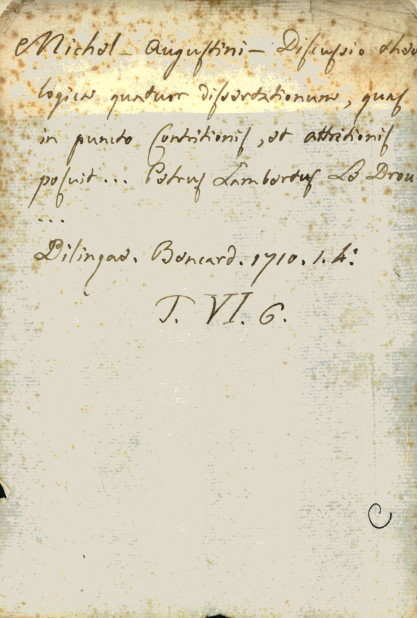 Michel – Augustini – Discussio theo
logica quatuor dissertationum, quas
in puncto Contritionis, et attritionis
posuit... Petrus Lambertus Le Drou
...
Dilingae. Bencard. 1710. 1. 4:
T. VI. 6.
C